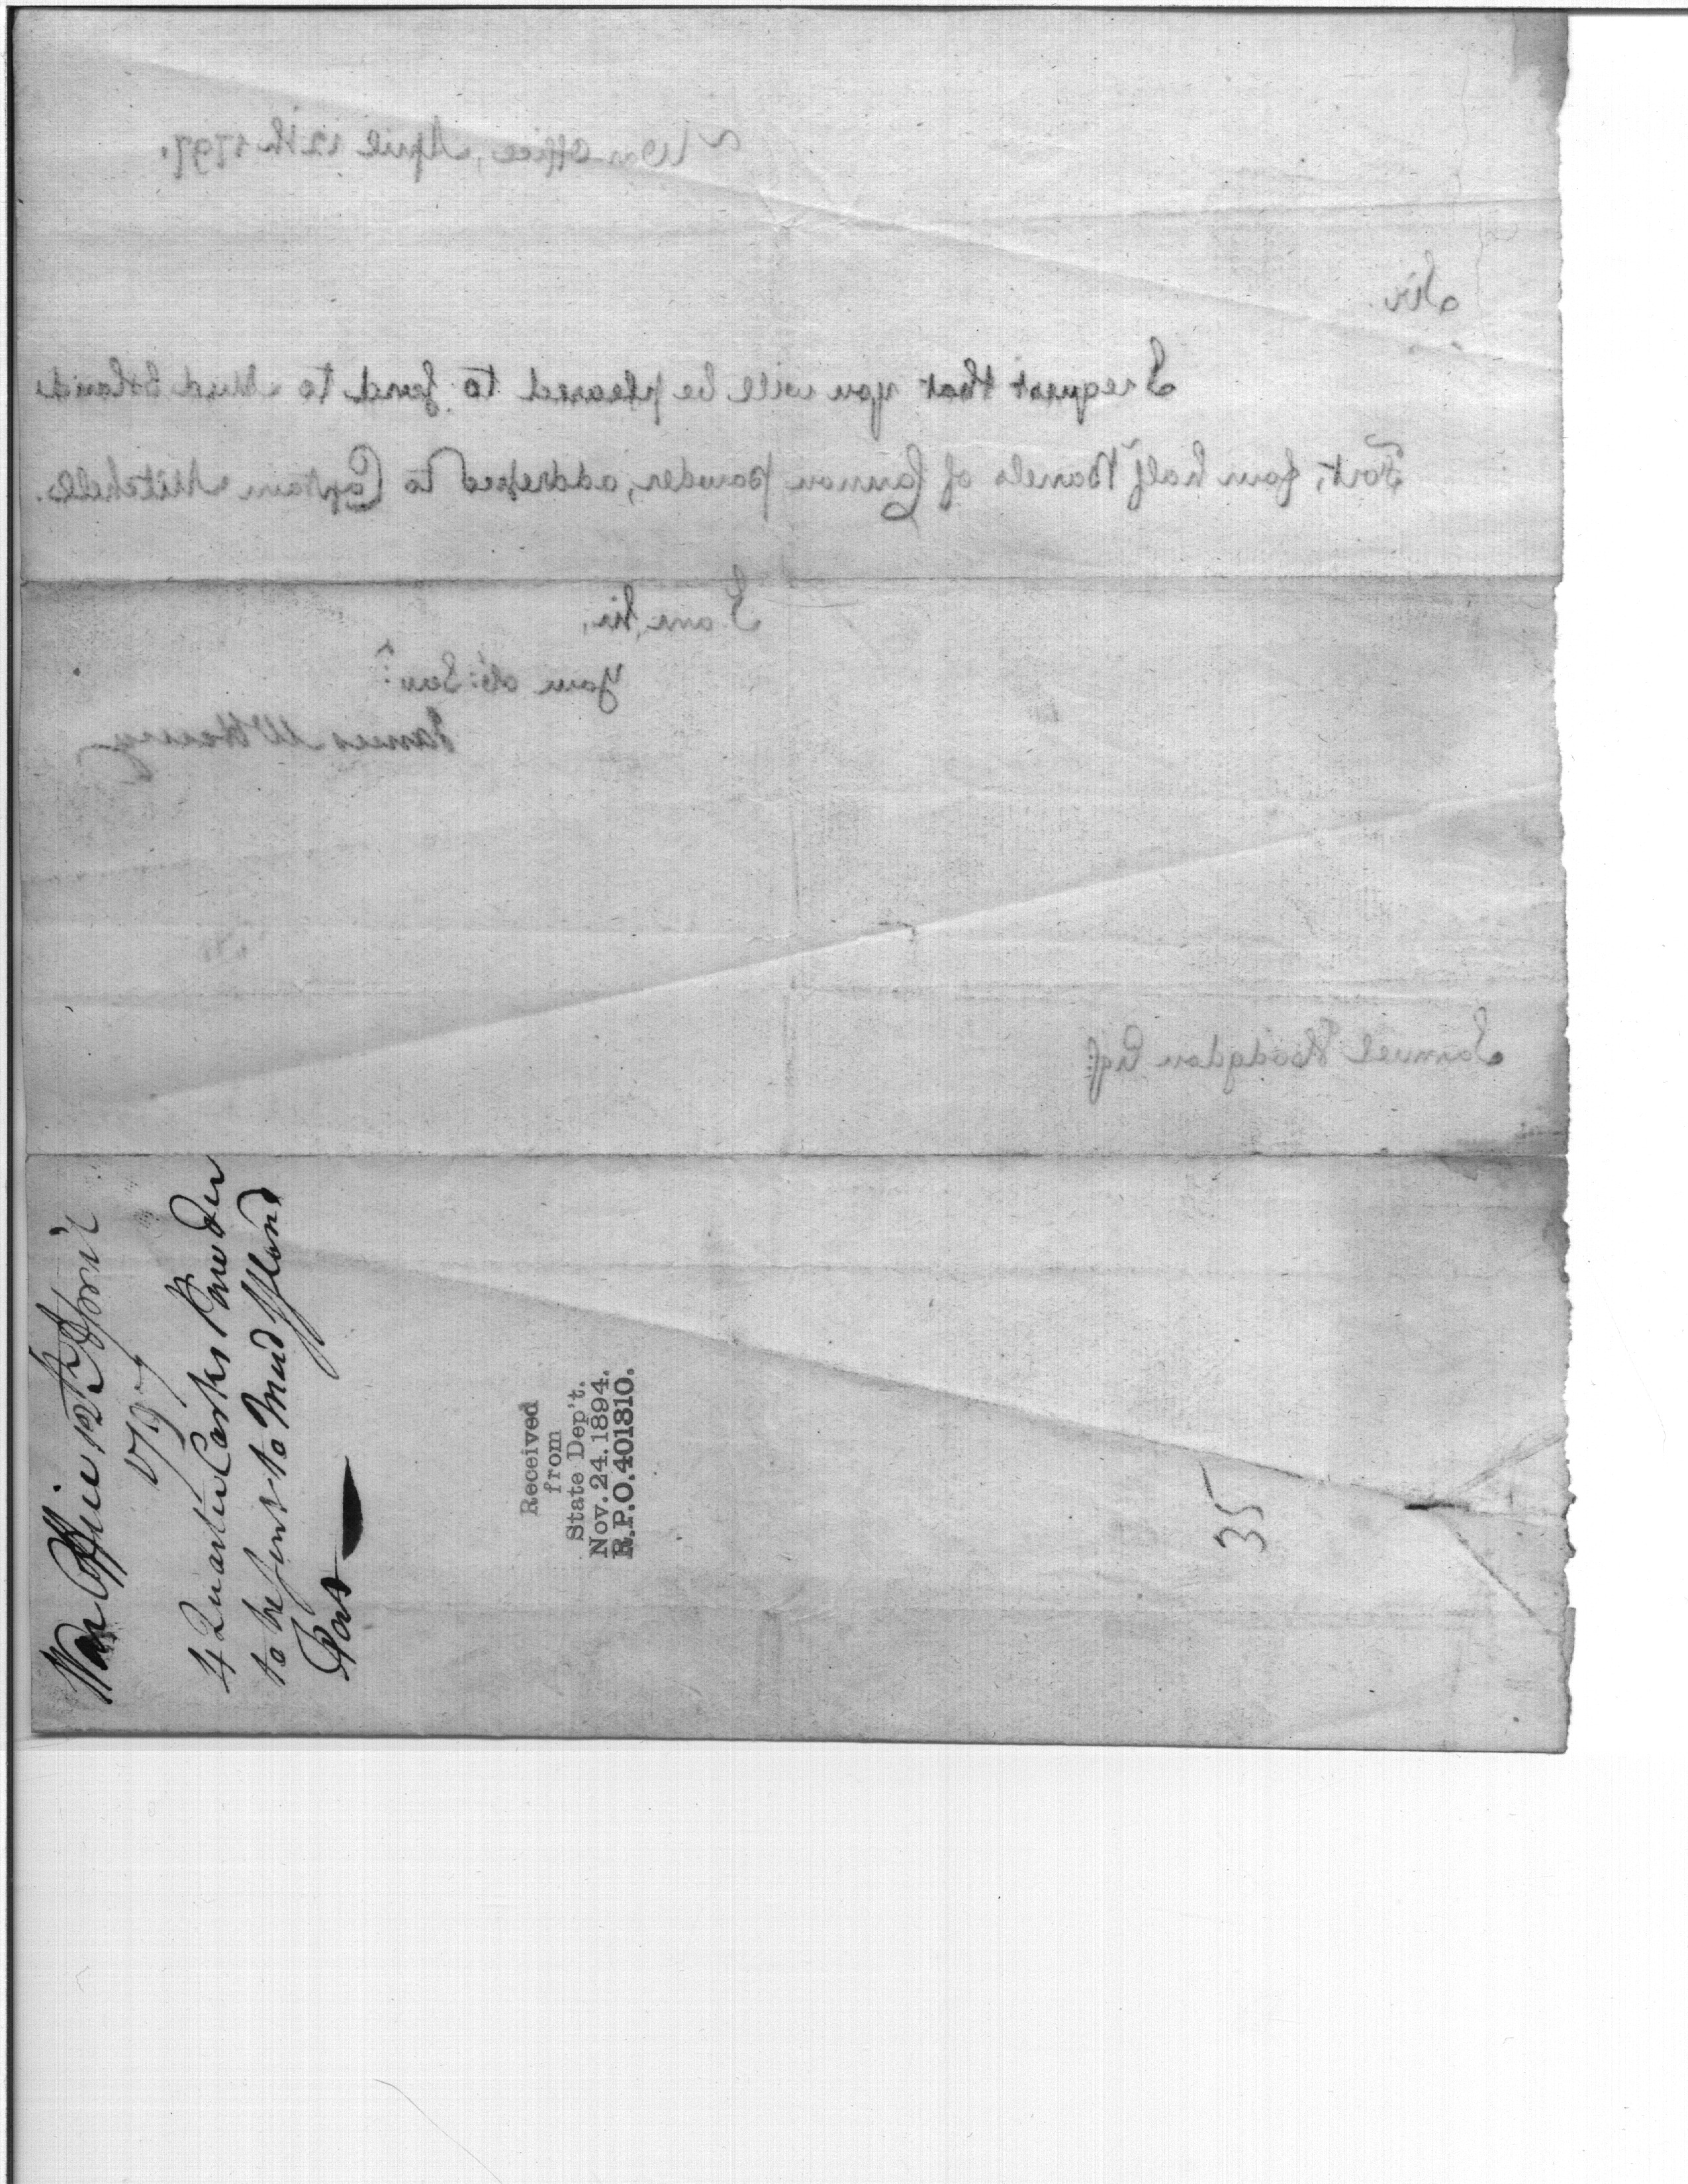 War Office, April 12th 1797.
Sir
I request that you will be pleased to send to Mud Island
Fort, four half Barrels of Cannon powder, addressed to Captain Mitchell.
I am Sir,
Your ob: Servt
James McHenry
Samuel Hodgdon Esqr
War Office 12th April
1797
4 Quarter Casks Powder
to be sent to Mud Island
Fort
Received
from
State Dep't.
Nov. 24. 1894.
R.P.O. 401810.
35